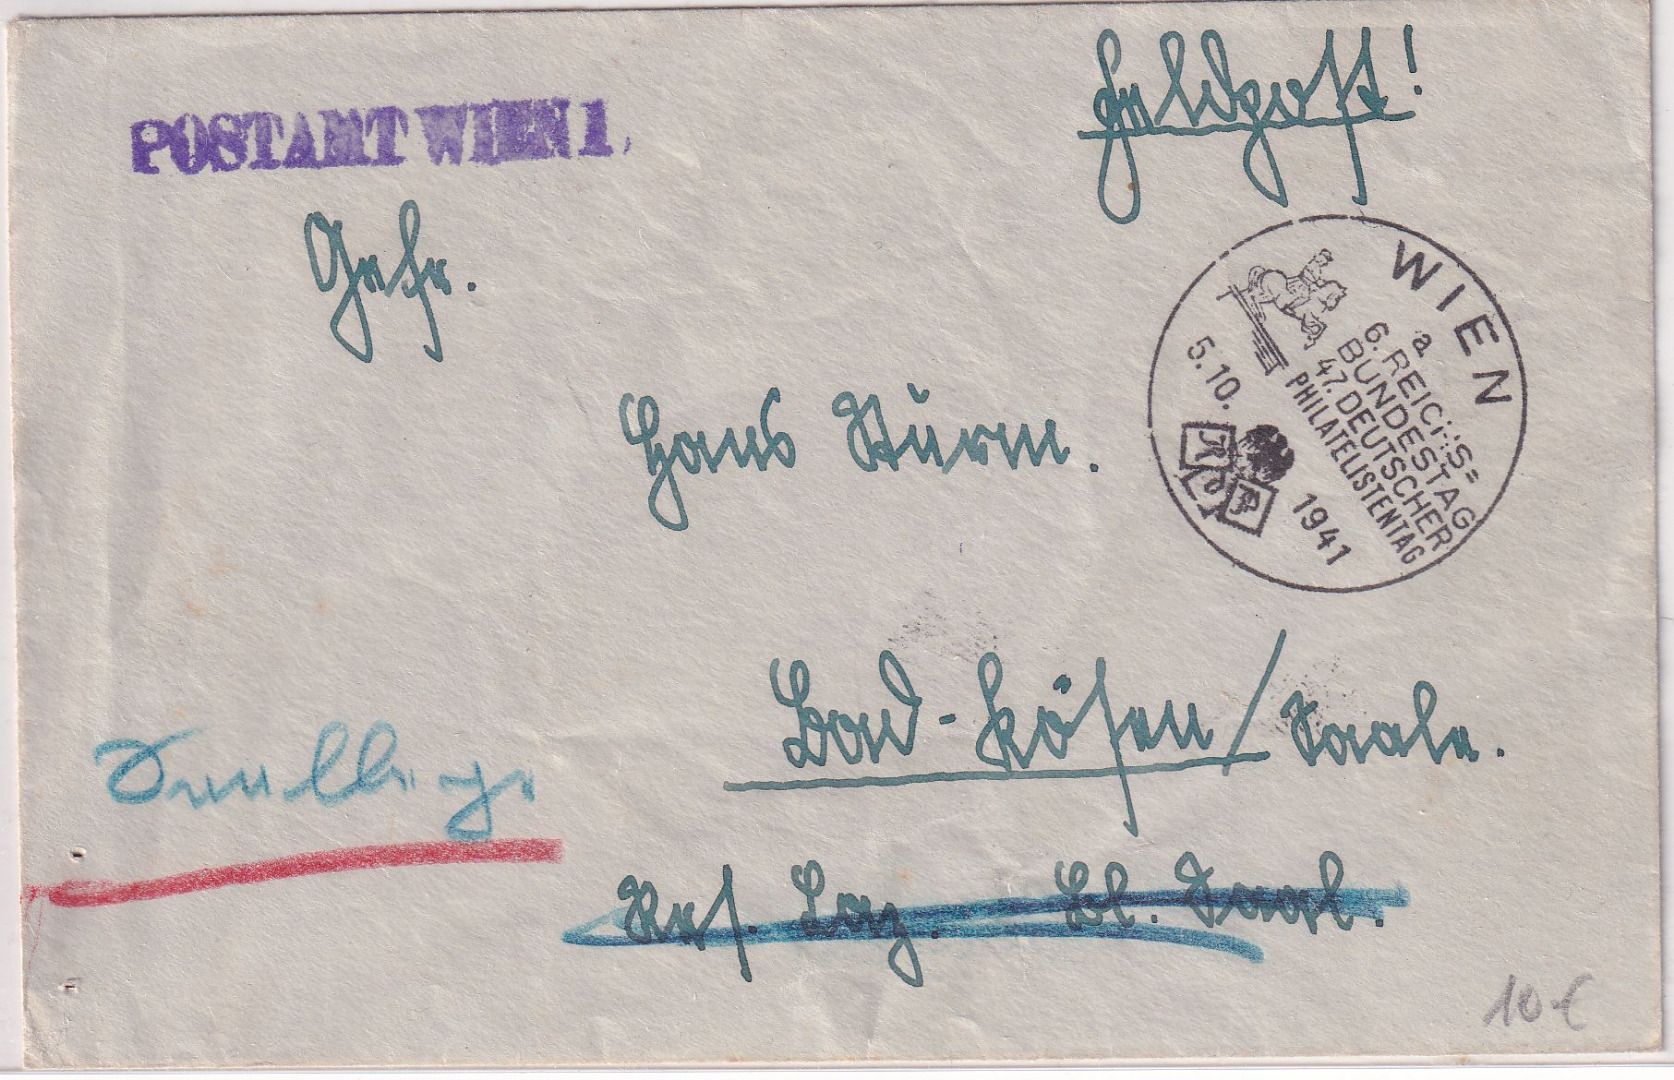 POSTAMT WIEN 1.
Feldpost!
Gefr.
Hans Sturm.
WIEN
a
6. REICHS=
BUNDESTAG
47. DEUTSCHER
PHILATELISTENTAG
5.10. 1941
KdF
Bad-Kösen/Saale.
Res. Laz. Bl. Saal.
10 €